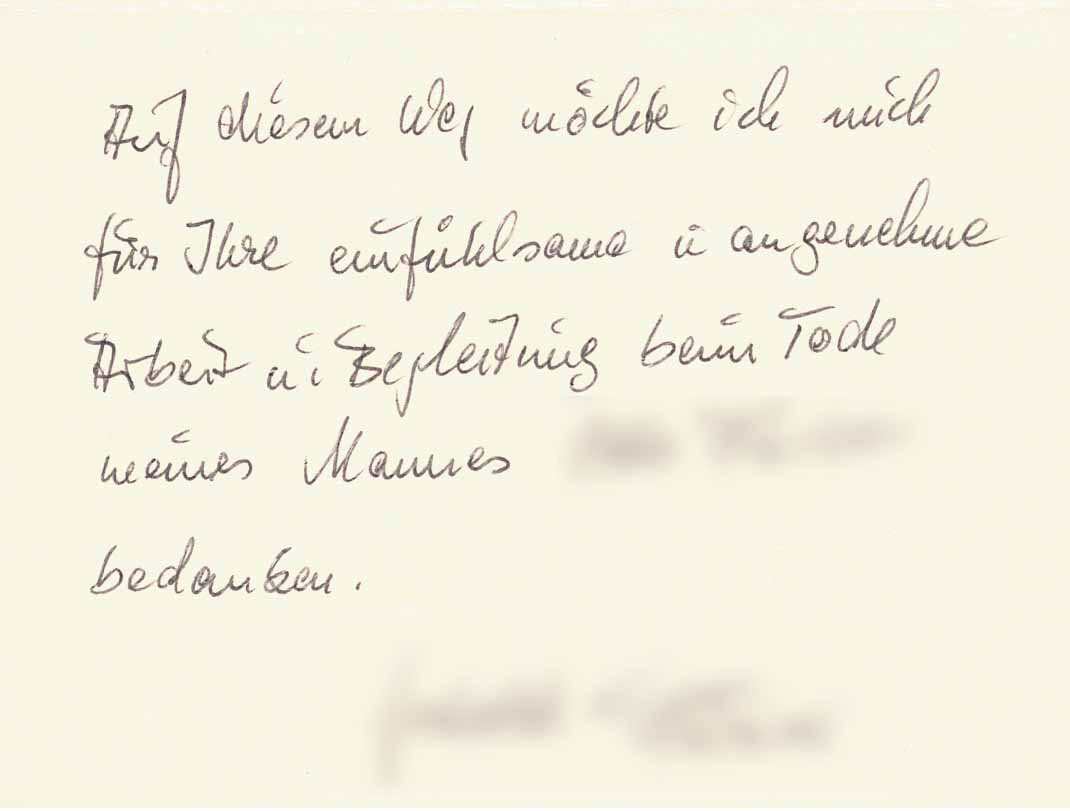 Auf diesem Weg möchte ich mich
für Ihre einfühlsame u angenehme
Arbeit u. Begleitung beim Tode
meines Mannes
bedanken.